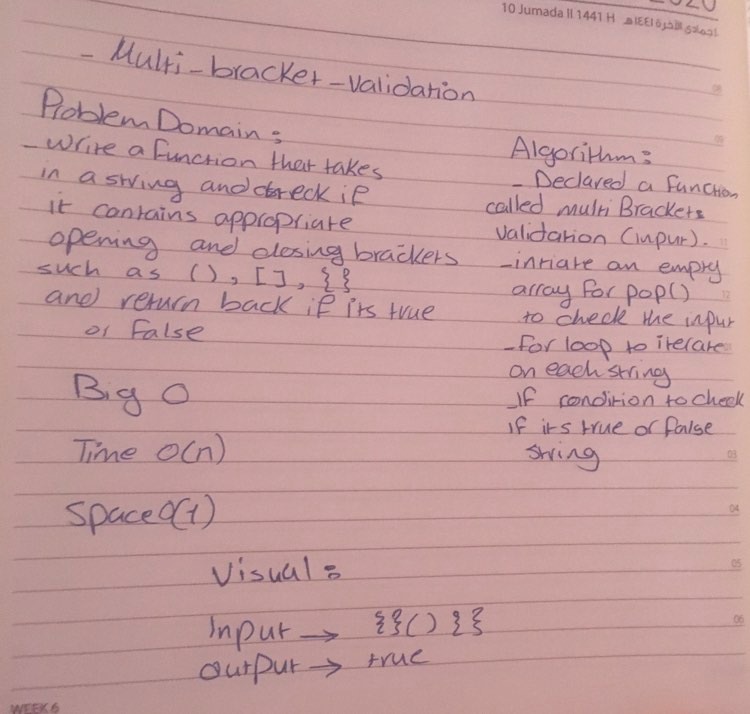 2020
10 Jumada II 1441 H
- Multi-bracket-validation
Problem Domain:
- Write a function that takes
in a string and check if
it contains appropriate
opening and closing brackets
such as (), [], {}
and return back if its true
or false
Big O
Time O(n)
Space O(1)
Algorithm:
- Declared a function
called multi Brackets
Validation (input).
- intiate an empty
array for pop()
to check the input
- for loop to iterate
on each string
- If condition to check
if its true or false
string
Visual:
Input → {{()}}
output → true
08
09
12
03
04
05
06
WEEK 6